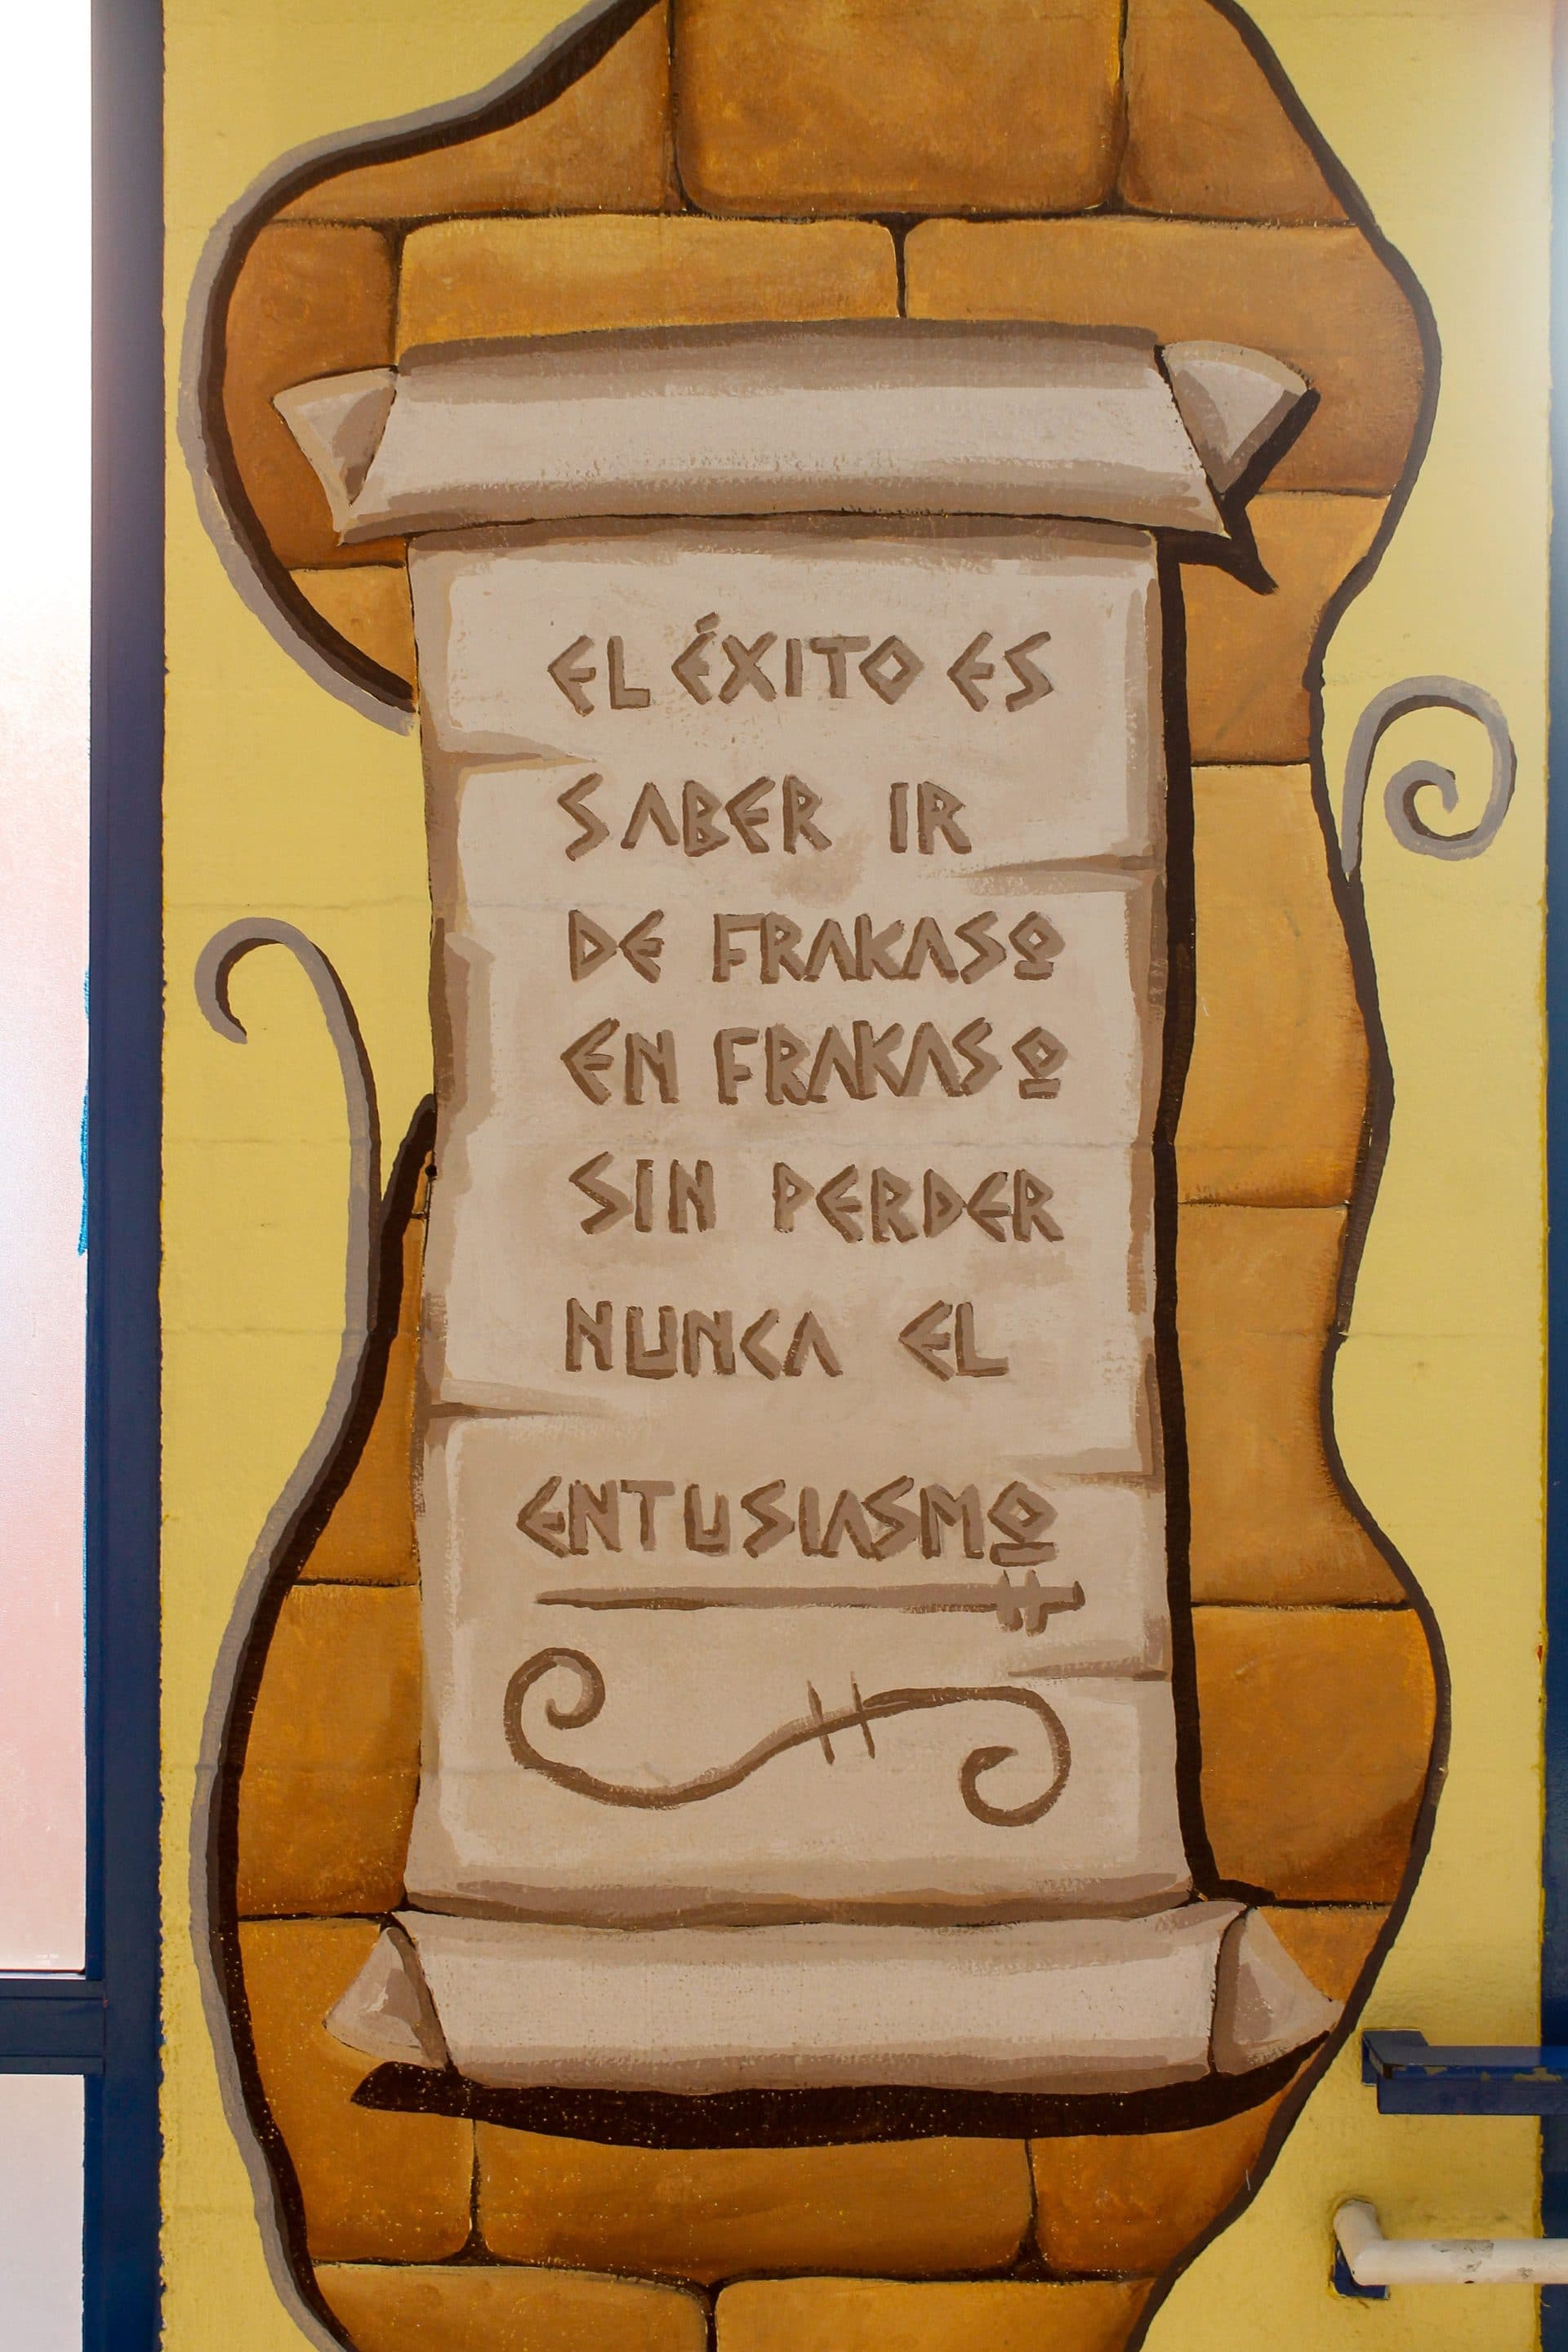 EL ÉXITO ES
SABER IR
DE FRAKASO
EN FRAKASO
SIN PERDER
NUNCA EL
ENTUSIASMO